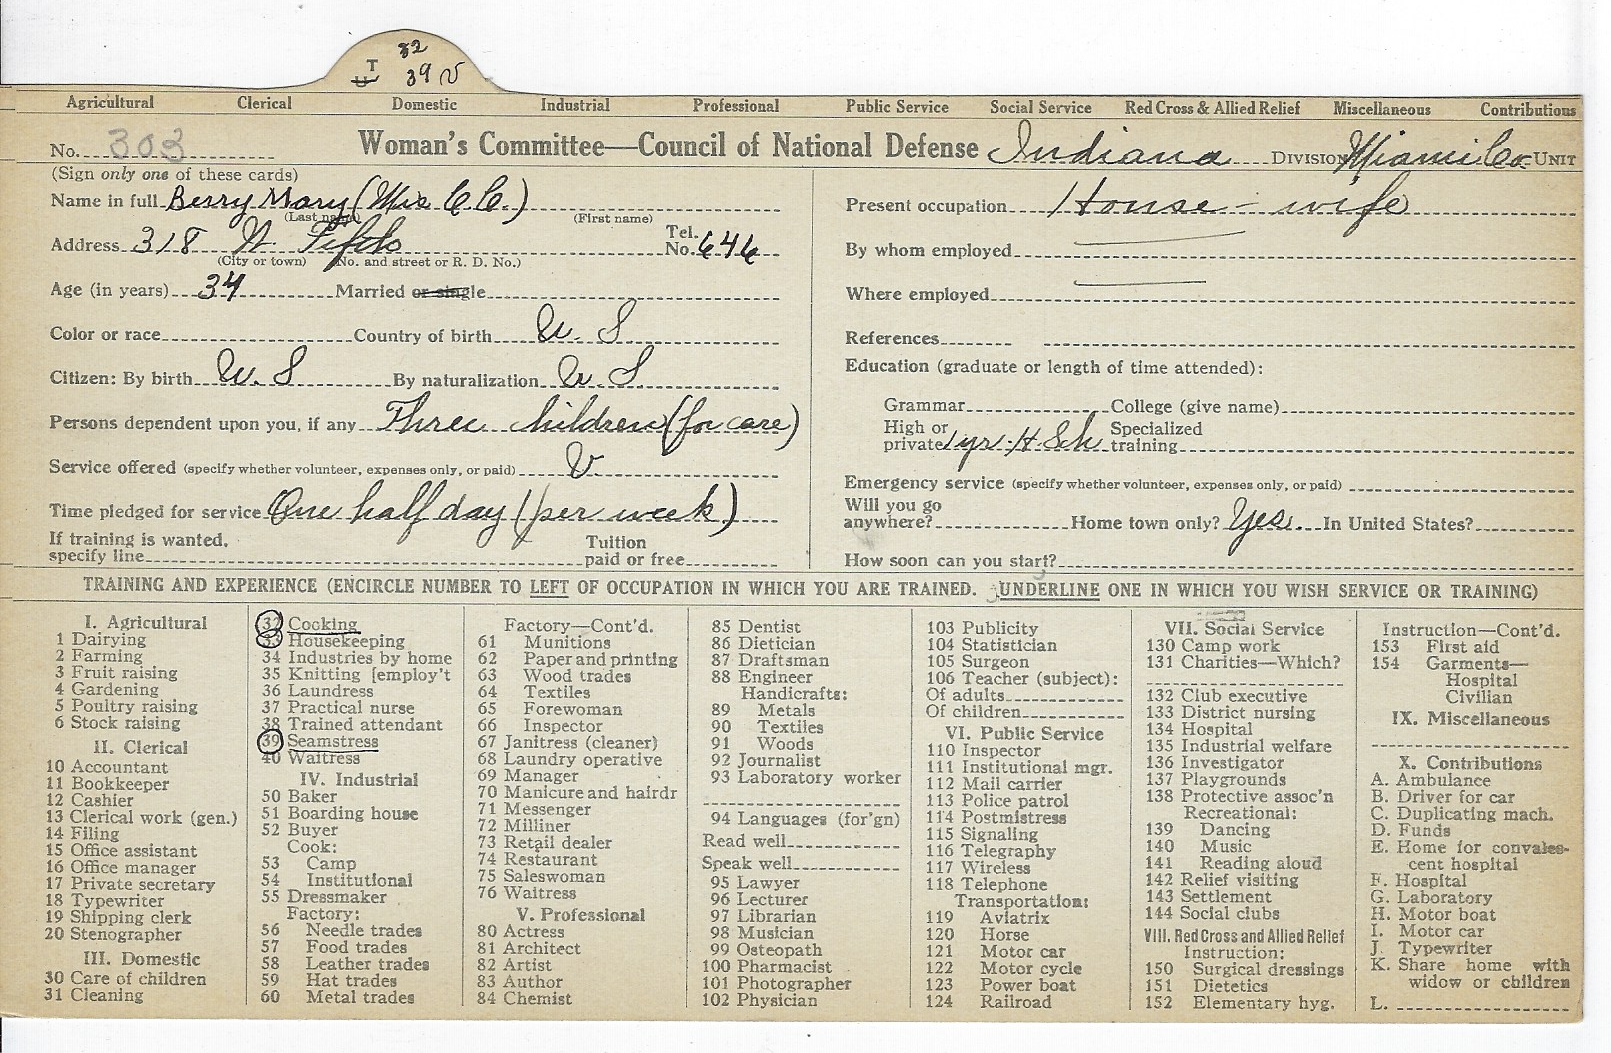 T 32
U 39 V
Agricultural Clerical Domestic Industrial Professional Public Service Social Service Red Cross & Allied Relief Miscellaneous Contributions
No. 303 Woman's Committee—Council of National Defense Indiana DIVISION Miami Co. UNIT
(Sign only one of these cards)
Name in full Berry Mary (Mrs C.C.)
(Last name) (First name)
Address 318 W. Fifth Tel. No. 646
(City or town) (No. and street or R. D. No.)
Age (in years) 34 Married or single
Color or race Country of birth U. S
Citizen: By birth U. S By naturalization U. S.
Persons dependent upon you, if any Three children (for care)
Service offered (specify whether volunteer, expenses only, or paid) V
Time pledged for service One half day (per week)
If training is wanted, specify line Tuition paid or free
Present occupation House-wife
By whom employed
Where employed
References
Education (graduate or length of time attended):
Grammar College (give name)
High or private 1 yr. H. Sch Specialized training
Emergency service (specify whether volunteer, expenses only, or paid)
Will you go anywhere? Home town only? Yes. In United States?
How soon can you start?
TRAINING AND EXPERIENCE (ENCIRCLE NUMBER TO LEFT OF OCCUPATION IN WHICH YOU ARE TRAINED. UNDERLINE ONE IN WHICH YOU WISH SERVICE OR TRAINING)
I. Agricultural
1 Dairying
2 Farming
3 Fruit raising
4 Gardening
5 Poultry raising
6 Stock raising
II. Clerical
10 Accountant
11 Bookkeeper
12 Cashier
13 Clerical work (gen.)
14 Filing
15 Office assistant
16 Office manager
17 Private secretary
18 Typewriter
19 Shipping clerk
20 Stenographer
III. Domestic
30 Care of children
31 Cleaning
32 Cooking
33 Housekeeping
34 Industries by home
35 Knitting [employ't
36 Laundress
37 Practical nurse
38 Trained attendant
39 Seamstress
40 Waitress
IV. Industrial
50 Baker
51 Boarding house
52 Buyer
Cook:
53 Camp
54 Institutional
55 Dressmaker
Factory:
56 Needle trades
57 Food trades
58 Leather trades
59 Hat trades
60 Metal trades
Factory—Cont'd.
61 Munitions
62 Paper and printing
63 Wood trades
64 Textiles
65 Forewoman
66 Inspector
67 Janitress (cleaner)
68 Laundry operative
69 Manager
70 Manicure and hairdr
71 Messenger
72 Milliner
73 Retail dealer
74 Restaurant
75 Saleswoman
76 Waitress
V. Professional
80 Actress
81 Architect
82 Artist
83 Author
84 Chemist
85 Dentist
86 Dietician
87 Draftsman
88 Engineer
Handicrafts:
89 Metals
90 Textiles
91 Woods
92 Journalist
93 Laboratory worker
94 Languages (for'gn)
Read well
Speak well
95 Lawyer
96 Lecturer
97 Librarian
98 Musician
99 Osteopath
100 Pharmacist
101 Photographer
102 Physician
103 Publicity
104 Statistician
105 Surgeon
106 Teacher (subject):
Of adults
Of children
VI. Public Service
110 Inspector
111 Institutional mgr.
112 Mail carrier
113 Police patrol
114 Postmistress
115 Signaling
116 Telegraphy
117 Wireless
118 Telephone
Transportation:
119 Aviatrix
120 Horse
121 Motor car
122 Motor cycle
123 Power boat
124 Railroad
VII. Social Service
130 Camp work
131 Charities—Which?
132 Club executive
133 District nursing
134 Hospital
135 Industrial welfare
136 Investigator
137 Playgrounds
138 Protective assoc'n
Recreational:
139 Dancing
140 Music
141 Reading aloud
142 Relief visiting
143 Settlement
144 Social clubs
VIII. Red Cross and Allied Relief
Instruction:
150 Surgical dressings
151 Dietetics
152 Elementary hyg.
Instruction—Cont'd.
153 First aid
154 Garments—
Hospital
Civilian
IX. Miscellaneous
X. Contributions
A. Ambulance
B. Driver for car
C. Duplicating mach.
D. Funds
E. Home for convales-
cent hospital
F. Hospital
G. Laboratory
H. Motor boat
I. Motor car
J. Typewriter
K. Share home with
widow or children
L.